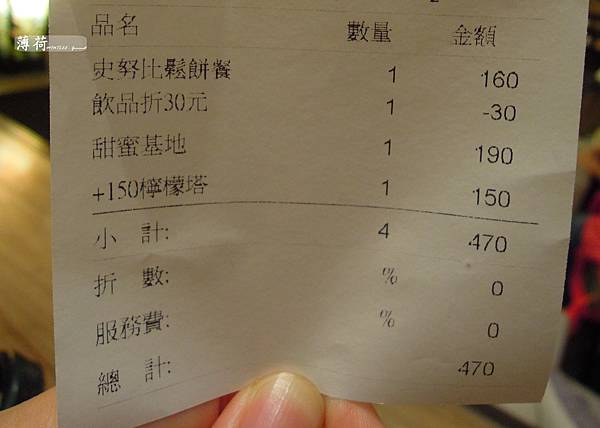 薄荷
品名 數量 金額
史努比鬆餅餐 1 160
飲品折30元 1 -30
甜蜜基地 1 190
+150檸檬塔 1 150
小 計: 4 470
折 數: % 0
服務費: % 0
總 計: 470